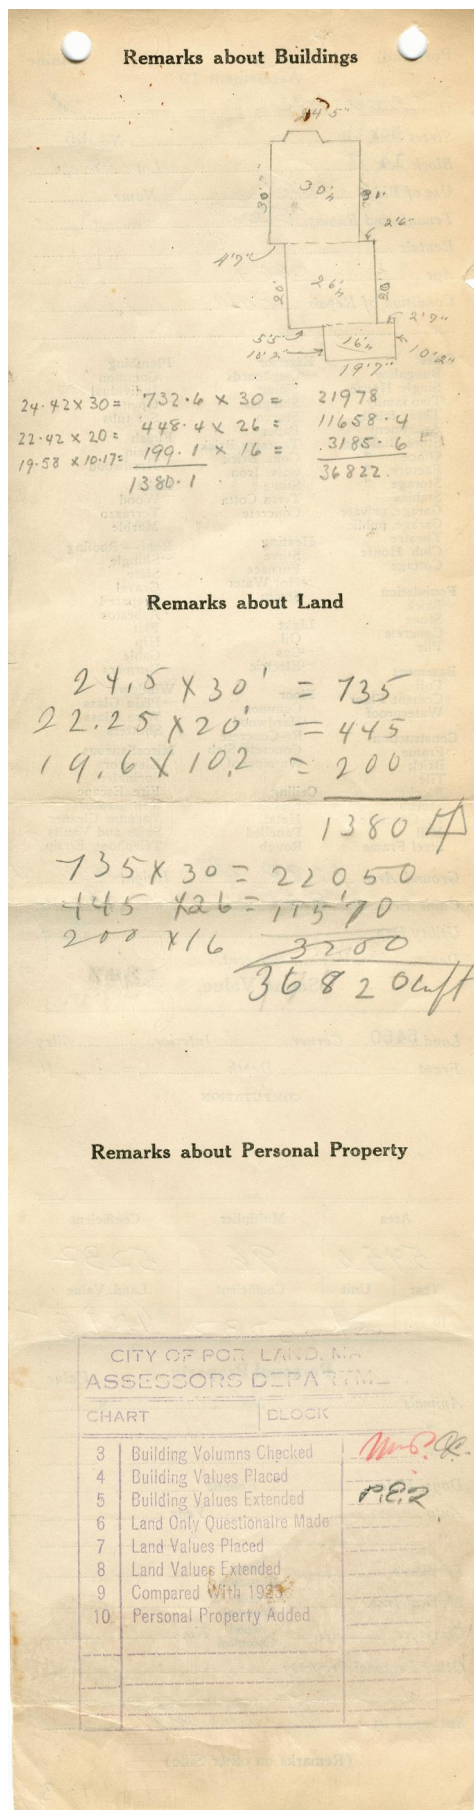 Remarks about Buildings
24'5"
30'
30'h
31'
2'6"
4'7"
20'
26'h
20'
2'9"
5'5"
16'h
10'2"
10'2"
19'7"
24.42 x 30 = 732.6 x 30 = 21978
22.42 x 20 = 448.4 x 26 = 11658.4
19.58 x 10.17 = 199.1 x 16 = 3185.6
1380.1 36822.
Remarks about Land
24.5 x 30' = 735
22.25 x 20' = 445
19.6 x 10.2 = 200
1380
735 x 30 = 22050
445 x 26 = 11570
200 x 16 3200
36820 cuft
Remarks about Personal Property
CITY OF PORTLAND, MA
ASSESSORS DEPARTME
CHART BLOCK
3 Building Volumns Checked
4 Building Values Placed
5 Building Values Extended P.E.2
6 Land Only Questionaire Made
7 Land Values Placed
8 Land Values Extended
9 Compared With 1923
10 Personal Property Added